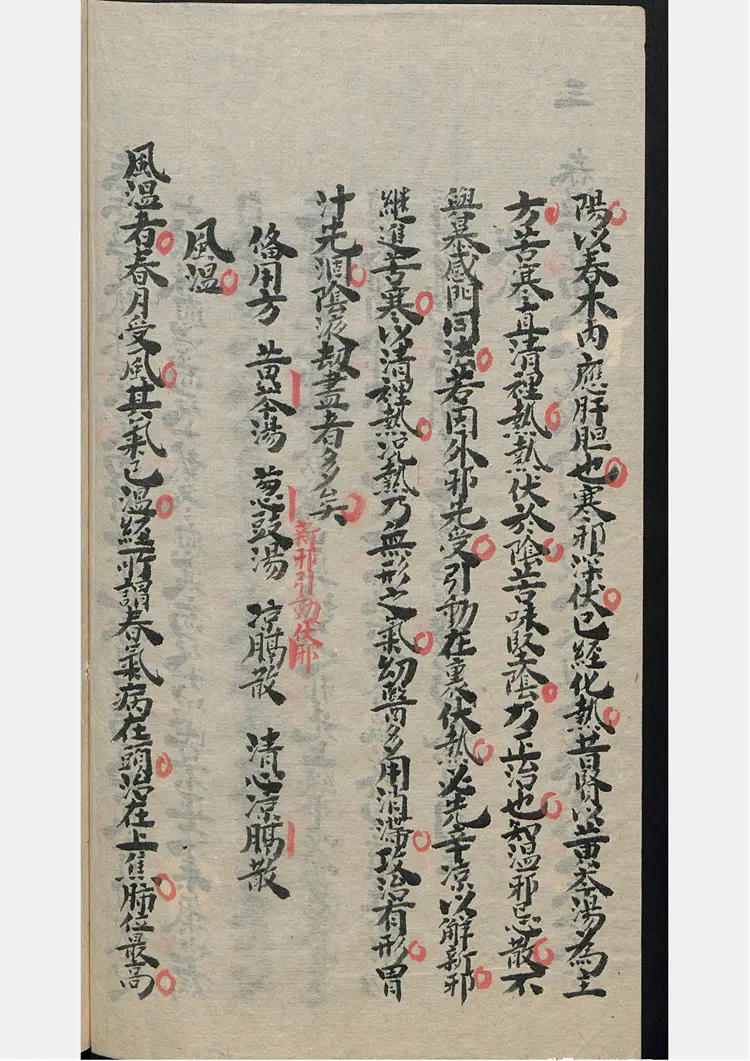 陽以春木內應肝胆也寒邪深伏已經化熱昔賢以黃芩湯為主
方苦寒直清裡熱熱伏於陰苦味堅陰乃正治也知溫邪忌散不
與暴感門同法若因外邪先受引動在裏伏熱必先辛凉以解新邪
繼進苦寒以清裡熱况熱乃無形之氣幼醫多用消滯攻治有形胃
汁先涸陰液劫盡者多矣
新邪引動伏邪
俻用方 黃芩湯 葱豉湯 凉膈散 清心凉膈散
風溫
風溫者春月受風其氣已溫經所謂春氣病在頭治在上焦肺位最高